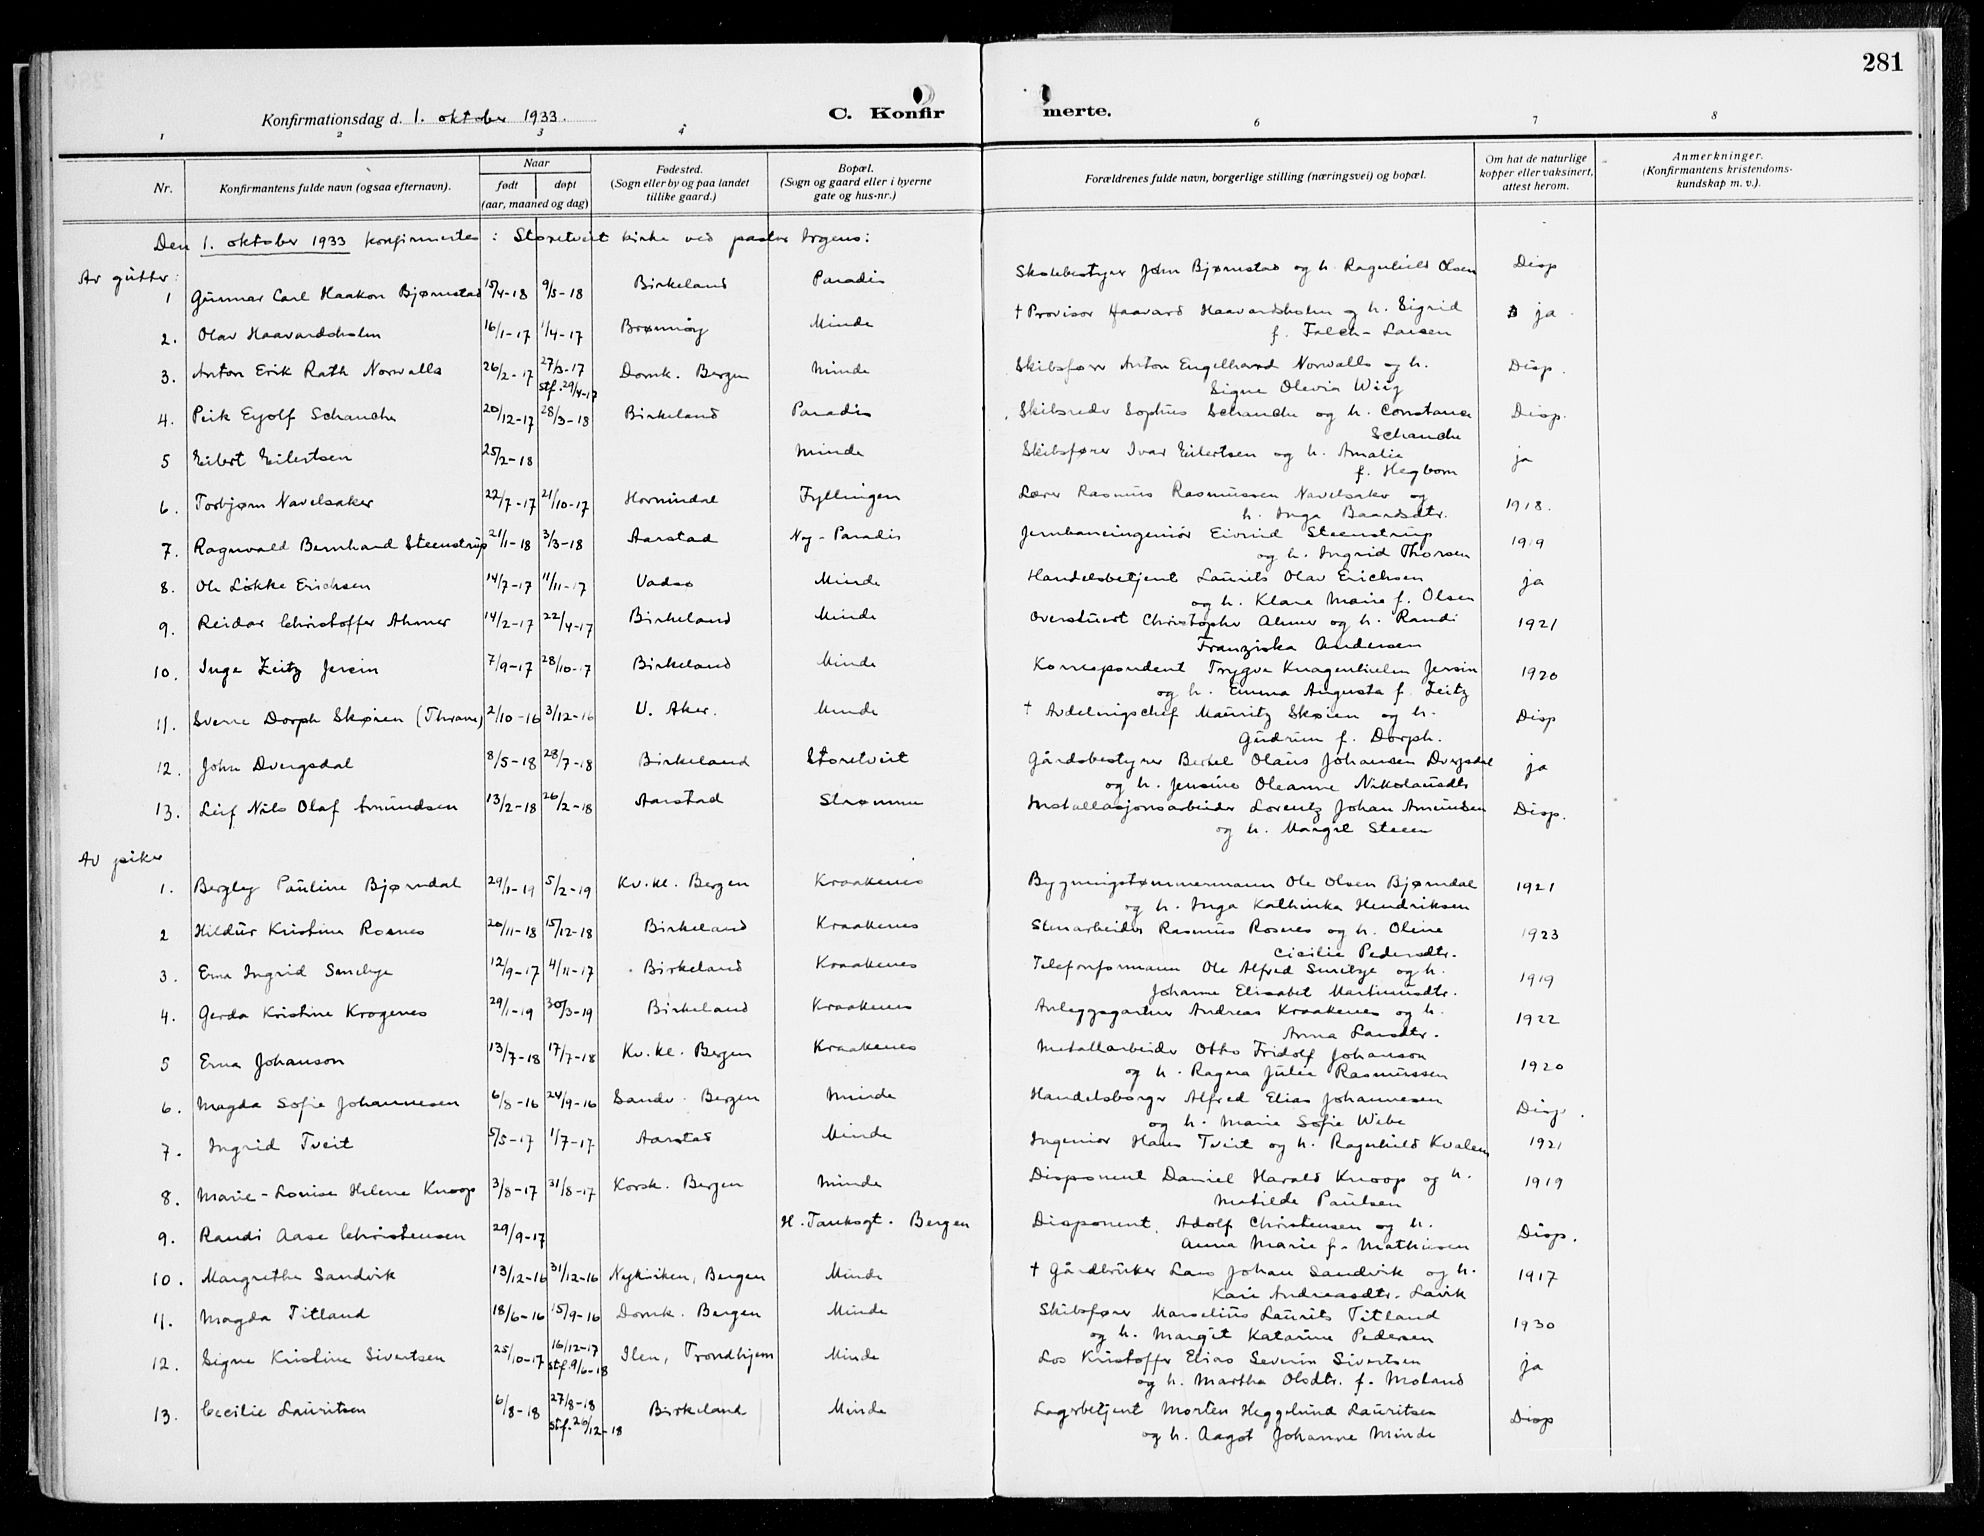 281
Konfirmationsdag d. 1. oktober 1933.
C. Konfirmerte.
1 2 3 4 6 7 8
Nr. Konfirmantens fulde navn (ogsaa efternavn). Naar født døpt (aar, maaned og dag) Fødested. (Sogn eller by og paa landet tillike gaard.) Bopæl. (Sogn og gaard eller i byerne gate og hus-nr.) Forældrenes fulde navn, borgerlige stilling (næringsvei) og bopæl. Om hat de naturlige kopper eller vaksinert, attest herom. Anmerkninger. (Konfirmantens kristendomskundskap m. v.).
Den 1. oktober 1933 konfirmertes i Storetveit kirke ved pastor Irgens:
Av gutter:
1 Gunnar Carl Haakon Bjørnstad 15/4-18 9/5-18 Birkeland Paradis Skolebestyrer John Bjørnstad og h. Ragnhild Olsen Disp
2. Olav Haavardsholm 16/1-17 1/4-17 Brønnøy Minde † Provisor Haavard Haavardsholm og h. Sigrid ja
f. Falch-Larsen
3. Anton Erik Rath Norvalls 26/2-17 27/3-17 Domk. Bergen Minde Skibsfører Anton Engelhard Norvalls og h. Disp.
stf. 29/4-17 Signe Olevia Wiig
4. Peik Eyolf Schanche 20/12-17 28/3-18 Birkeland Paradis Skibsreder Sophus Schanche og h. Constance Disp.
Schanche
5 Eilert Eilertsen 25/2-18 Minde Skibsfører Ivar Eilertsen og h. Amalie ja
f. Hegbom
6. Torbjørn Navelsaker 22/7-17 21/10-17 Hornindal Fyllingen Lærer Rasmus Rasmussen Navelsaker og 1918.
h. Inga Baardsdtr.
7. Ragnvald Bernhard Steenstrup 21/1-18 3/3-18 Aarstad Ny-Paradis Jernbaneingeniør Eivind Steenstrup 1919
og h. Ingrid Thorsen
8. Ole Løkke Erichsen 14/7-17 11/11-17 Vadsø Minde Handelsbetjent Laurits Olav Erichsen ja
og h. Klara Marie f. Olsen
9. Reidar Christoffer Ahmer 14/2-17 22/4-17 Birkeland Minde Overstuert Christopher Ahmer og h. Randi 1921
Franziska Andersen
10. Inge Zeitz Jersin 7/9-17 28/10-17 Birkeland Minde Korrespondent Trygve Knagenhielm Jersin 1920
og h. Emma Augusta f. Zeitz
11. Sverre Dorph Skøien (Thrane) 2/10-16 3/12-16 V. Aker. Minde † Avdelingschef Mauritz Skøien og h. Disp
Gudrun f. Dorph.
12. John Dvergsdal 8/5-18 28/7-18 Birkeland Storetveit Gårdsbestyrer Bertel Olaus Johansen Dvergsdal ja
og h. Jensine Oleanne Nikolausdtr
13. Leif Nils Olaf Amundsen 13/2-18 26/2-18 Aarstad Strømme Installasjonsarbeider Lorentz Johan Amundsen Disp.
og h. Margit Steen
Av piker
1. Bergley Pauline Bjørndal 29/1-19 5/2-19 Kv.kl. Bergen Kraakenes Bygningstømmermann Ole Olsen Bjørndal 1921
og h. Inga Kathinka Hendriksen
2 Hildur Kristine Rosnes 20/11-18 15/12-18 Birkeland Kraakenes Stenarbeider Rasmus Rosnes og h. Oline 1923
Cicilie Pedersdtr.
3. Erna Ingrid Smebye 12/9-17 4/11-17 Birkeland Kraakenes Telefonformann Ole Alfred Smebye og h. 1919
Johanne Elisabet Martinusdtr.
4. Gerda Kristine Krogenes 29/1-19 30/3-19 Birkeland Kraakenes Anleggsgartner Andreas Kraakenes og h. 1922
Anna Larsdtr.
5 Erna Johanson 13/7-18 17/7-18 Kv.kl. Bergen Kraakenes Metallarbeider Otto Fridolf Johanson 1920
og h. Ragna Julie Rasmussen
6. Magda Sofie Johannesen 6/8-16 24/9-16 Sandv. Bergen Minde Handelsborger Alfred Elias Johannesen Disp.
og h. Marie Sofie Wibe
7. Ingrid Tveit 5/5-17 1/7-17 Aarstad Minde Ingeniør Hans Tveit og h. Ragnhild Kvalem 1921
8. Marie-Louise Helene Knoop 3/8-17 31/8-17 Korsk. Bergen Minde Disponent Daniel Harald Knoop og h. 1919
Matilde Paulsen
9. Randi Aase Christensen 29/9-17 H. Tanksgt. Bergen Disponent Adolf Christensen og h. Disp.
Anna Marie f. Mathiesen
10. Margrethe Sandvik 13/12-16 31/12-16 Nykirken, Bergen Minde † Gårdbruker Lars Johan Sandvik og h. 1917
Kari Andreasdtr. Lavik
11. Magda Titland 18/6-16 15/9-16 Domk. Bergen Minde Skibsfører Marselius Laurits Titland 1930
og h. Margit Katarine Pedersen
12. Signe Kristine Sivertsen 25/10-17 16/12-17 Ilen, Trondhjem Minde Los Kristoffer Elias Severin Sivertsen ja
stf. 9/6-18 og h. Martha Olsdtr. f. Moland
13. Cecilie Lauritsen 6/8-18 27/8-18 Birkeland Minde Lagerbetjent Morten Heggelund Lauritsen Disp
stf. 26/12-18 og h. Aagot Johanne Minde